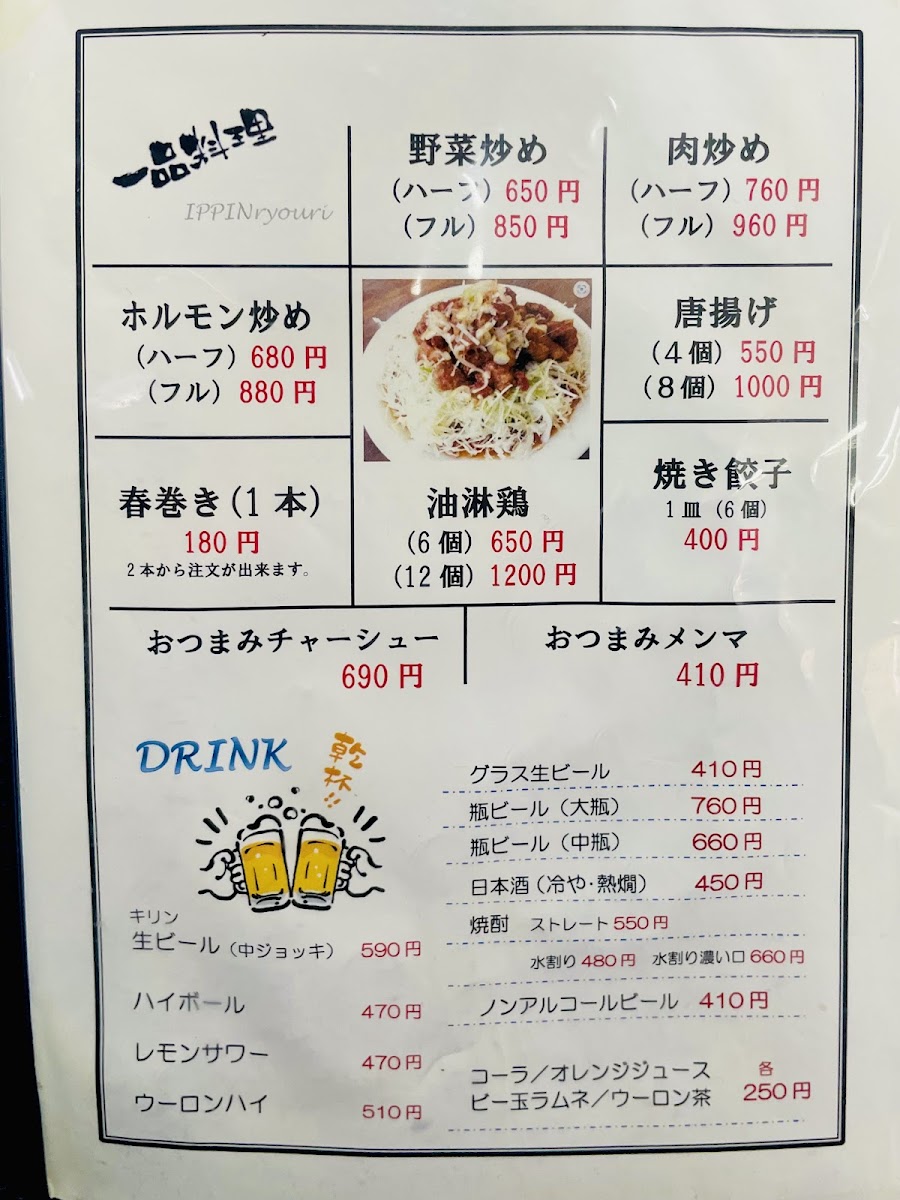 一品料理
IPPINryouri
野菜炒め
（ハーフ）650円
（フル）850円
肉炒め
（ハーフ）760円
（フル）960円
ホルモン炒め
（ハーフ）680円
（フル）880円
唐揚げ
（4個）550円
（8個）1000円
春巻き（1本）
180円
2本から注文が出来ます。
油淋鶏
（6個）650円
（12個）1200円
焼き餃子
1皿（6個）
400円
おつまみチャーシュー
690円
おつまみメンマ
410円
DRINK
乾杯!!
キリン
生ビール（中ジョッキ） 590円
ハイボール 470円
レモンサワー 470円
ウーロンハイ 510円
グラス生ビール 410円
瓶ビール（大瓶） 760円
瓶ビール（中瓶） 660円
日本酒（冷や・熱燗） 450円
焼酎 ストレート550円
水割り480円 水割り濃い口660円
ノンアルコールビール 410円
コーラ／オレンジジュース 各
ビー玉ラムネ／ウーロン茶 250円